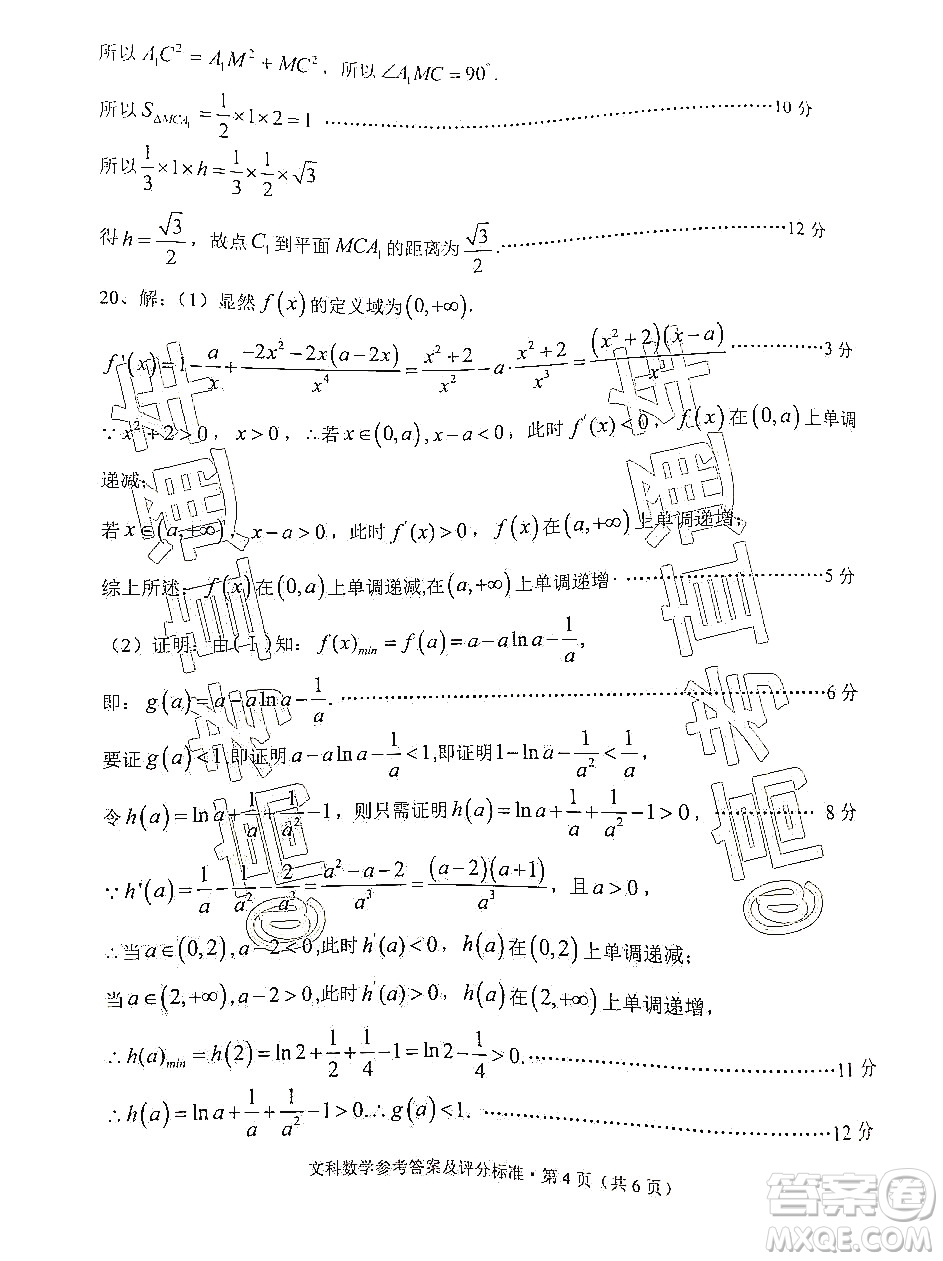 所以 A₁C² = A₁M² + MC², 所以 ∠A₁MC = 90°.
所以 S_{ΔMCA₁} = 1/2 × 1 × 2 = 1 ………………10 分
所以 1/3 × 1 × h = 1/3 × 1/2 × √3
得 h = √3/2, 故点 C₁ 到平面 MCA₁ 的距离为 √3/2. ………………12 分
20、解:(1) 显然 f(x) 的定义域为 (0,+∞).
f'(x) = 1 - a/x + (-2x² - 2x(a-2x))/x⁴ = (x²+2)/x² - a·(x²+2)/x³ = (x²+2)(x-a)/x³ ………………3 分
∵ x²+2>0, x>0, ∴若 x∈(0,a), x-a<0, 此时 f'(x)<0, f(x) 在 (0,a) 上单调
递减;
若 x∈(a,+∞), x-a>0, 此时 f'(x)>0, f(x) 在 (a,+∞) 上单调递增;
综上所述: f(x) 在 (0,a) 上单调递减,在 (a,+∞) 上单调递增 ………………5 分
(2) 证明: 由(1)知: f(x)_{min} = f(a) = a - a ln a - 1/a,
即: g(a) = a - a ln a - 1/a. ………………6 分
要证 g(a)<1,即证明 a - a ln a - 1/a < 1,即证明 1 - ln a - 1/a² < 1/a,
令 h(a) = ln a + 1/a + 1/a² - 1, 则只需证明 h(a) = ln a + 1/a + 1/a² - 1 > 0, ………………8 分
∵ h'(a) = 1/a - 1/a² - 2/a³ = (a²-a-2)/a³ = (a-2)(a+1)/a³, 且 a>0,
∴当 a∈(0,2), a-2<0,此时 h'(a)<0, h(a) 在 (0,2) 上单调递减;
当 a∈(2,+∞), a-2>0,此时 h'(a)>0, h(a) 在 (2,+∞) 上单调递增,
∴ h(a)_{min} = h(2) = ln 2 + 1/2 + 1/4 - 1 = ln 2 - 1/4 > 0. ………………11 分
∴ h(a) = ln a + 1/a + 1/a² - 1 > 0. ∴ g(a)<1. ………………12 分
文科数学参考答案及评分标准·第 4 页(共 6 页)
答案卷
MXQE.COM